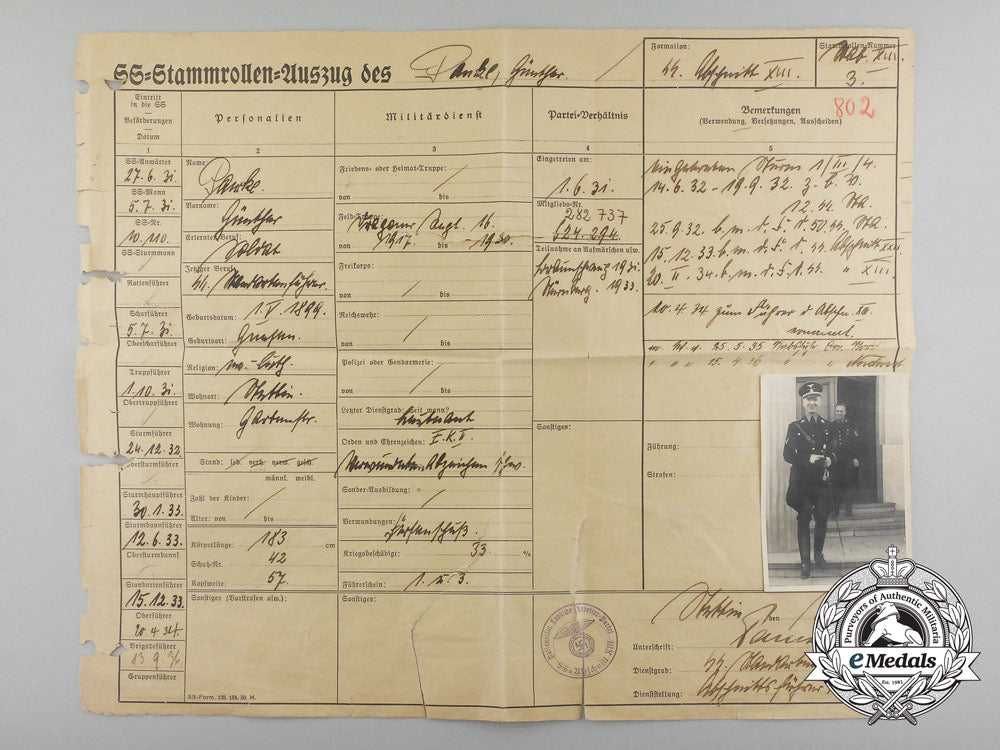 SS=Stammrollen=Auszug des Pancke, Günther.
Formation:
SS. Abschnitt XIII.
Stammrollen-Nummer
Stab. XIII.
3.
Eintritt
in die SS
Beförderungen
Datum
Personalien
Militärdienst
Partei-Verhältnis
Bemerkungen
(Verwendung, Versetzungen, Ausscheiden)
802
1
2
3
4
5
SS-Anwärter
27.6.31.
SS-Mann
5.7.31.
SS-Nr.
10.110.
SS-Sturmmann
Rottenführer
Scharführer
5.7.31.
Oberscharführer
Truppführer
1.10.31.
Obertruppführer
Sturmführer
24.12.32.
Obersturmführer
Sturmhauptführer
30.1.33.
Sturmbannführer
12.6.33.
Obersturmbannf.
Standartenführer
15.12.33.
Oberführer
20.4.34.
Brigadeführer
13.9.36.
Gruppenführer
Name:
Pancke.
Vorname:
Günther
Erlernter Beruf:
Soldat
Jetziger Beruf:
SS. Standartenführer.
Geburtsdatum: 1.V.1899.
Geburtsort: Gnesen.
Religion: ev.-luth.
Wohnort: Stettin.
Wohnung: Gartenstr.
Stand: led. verh. verw. gesch.
männl. weibl.
Zahl der Kinder:
Alter: von bis
Körperlänge: 183 cm
Schuh-Nr. 42
Kopfweite: 57.
Sonstiges (Vorstrafen usw.):
SS-Form.
Friedens- oder Heimat-Truppe:
von bis
Feld-Truppe: Dragoner Regt. 16.
von 1917. bis 1920.
Freikorps:
von bis
Reichswehr:
von bis
Polizei oder Gendarmerie:
von bis
Letzter Dienstgrad: Seit wann?
Leutnant
Orden und Ehrenzeichen: E.K.I.
Verwundeten Abzeichen schw.
Sonder-Ausbildung:
Verwundungen:
Fersenschuß.
Kriegsbeschädigt: 33. %
Führerschein: 1. u. 3.
Sonstiges:
Eingetreten am:
1.6.31.
Mitglieds-Nr.
282 737
Teilnahme an Aufmärschen usw.
Braunschweig 1931.
Nürnberg. 1933.
Sonstiges:
eingetreten Sturm 1/III/4.
14.6.32 - 19.9.32 z.b.V.
12. SS. Sta.
25.9.32. b.m.d.F.d. 50. SS. Sta.
15.12.33. b.m.d.F.d. SS. Abschnitt
20.II.34. b.m.d.F.d. SS. " XIII
20.4.34 zum Führer d. Abschn. XIII.
ernannt.
25.5.35
15.4.36
Führung:
Strafen:
Stettin, den
Unterschrift:
Dienstgrad: SS. Standarten
Dienststellung: Abschnittsführer
Purveyors of Authentic Militaria
eMedals
Est. 1981